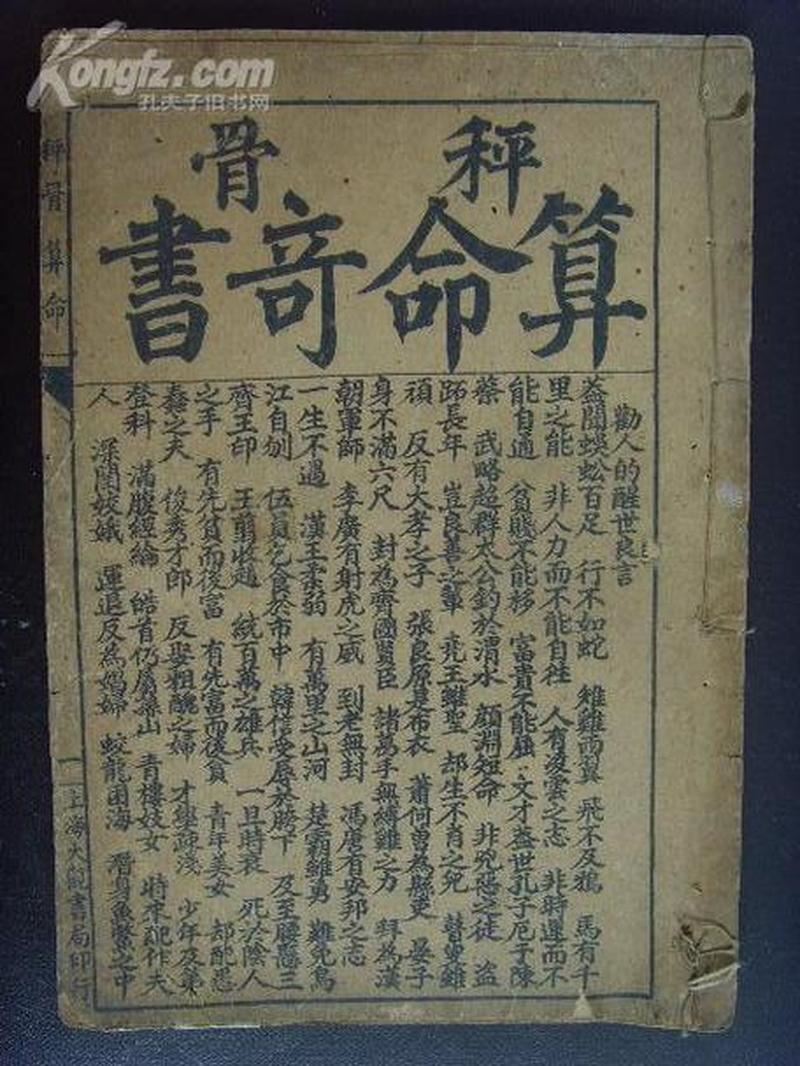 Kongfz.com
孔夫子旧书网
秤骨
算命竒書
勸人的醒世良言
葢聞蜈蚣百足 行不如蛇 雉雞兩翼 飛不及鴉 馬有千
里之能 非人力而不能自往 人有凌雲之志 非時運而不
能自通 貧賤不能移 富貴不能屈 文才葢世孔子厄于陳
蔡 武略超群太公釣於渭水 顔淵短命 非兇惡之徒 盗
跖長年 豈良善之輩 堯王雖聖 却生不肖之兒 瞽叟雖
頑 反有大孝之子 張良原是布衣 蕭何曽為縣吏 晏子
身不滿六尺 封為齊國賢臣 諸葛手無縛雞之力 拜為漢
朝軍師 李廣有射虎之威 到老無封 馮唐有安邦之志
一生不遇 漢王柔弱 有萬里之山河 楚霸雖勇 難免烏
江自刎 伍員乞食於市中 韓信受辱於胯下 及至腰懸三
齊王印 王翦收趙 統百萬之雄兵 一旦時衰 死於陰人
之手 有先貧而後富 有先富而後貧 青年美女 却配愚
蠢之夫 俊秀才郎 反娶粗醜之婦 才學疎淺 少年及第
登科 滿腹經綸 皓首仍屬深山 青樓妓女 時來迎作夫
人 深閨姣娥 運退反為娼婦 蛟龍困海 潛身魚鱉之中
秤骨算命
一
上海大觀書局印行